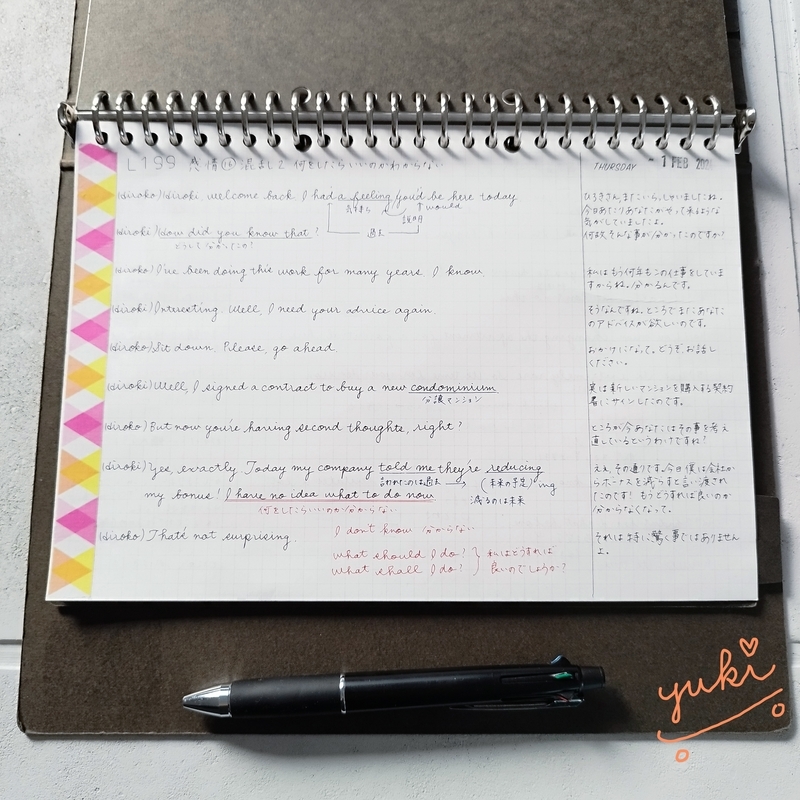 L199 感情⑯ 混乱2 何をしたらいいのかわからない
THURSDAY - 1 FEB
Hiroko) Hiroki, welcome back. I had a feeling you'd be here today
気持ち
説明
would
過去
Hiroki) How did you know that?
どうして分かったの?
Hiroko) I've been doing this work for many years. I know.
Hiroki) Interesting. Well, I need your advice again.
Hiroko) Sit down. Please, go ahead.
Hiroki) Well, I signed a contract to buy a new condominium
分譲マンション
Hiroko) But now you're having second thoughts, right?
Hiroki) Yes, exactly. Today my company told me they're reducing
言われたのは過去 → (未来の予定) ing
my bonus! I have no idea what to do now
減るのは未来
何をしたらいいのか分からない
Hiroko) That's not surprising.
I don't know 分からない
what should I do?
what shall I do?
私はどうすれば
良いのでしょうか?
ひろきさん、またいらっしゃいましたね。
今日あたりあなたがやって来るような
気がしていましたよ。
何故、そんな事が分かったのですか?
私はもう何年もこの仕事をしていま
すからね。分かるんです。
そうなんですね。ところでまたあなた
のアドバイスが欲しいのです。
おかけになって。どうぞ、お話し
ください。
実は新しいマンションを購入する契約
書にサインしたのです。
ところが今あなたはその事を考え
直しているというわけですね?
ええ、その通りです。今日僕は会社か
らボーナスを減らすと言い渡され
たのです! もうどうすれば良いのか
分からなくなって。
それは特に驚く事ではありません
よ。
yuki